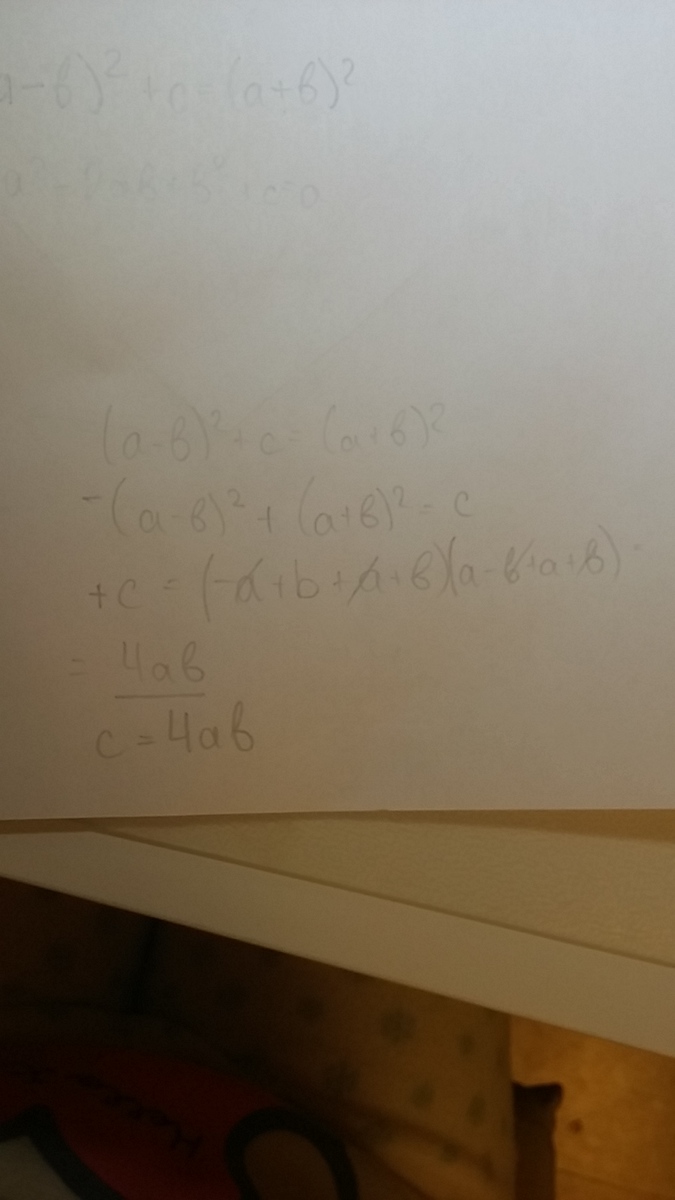 a-b)² + c = (a+b)²
(a-b)² + c = (a+b)²
-(a-b)² + (a+b)² = c
+c = (-a+b+a+b)(a-b+a+b)
= 4ab
c = 4ab